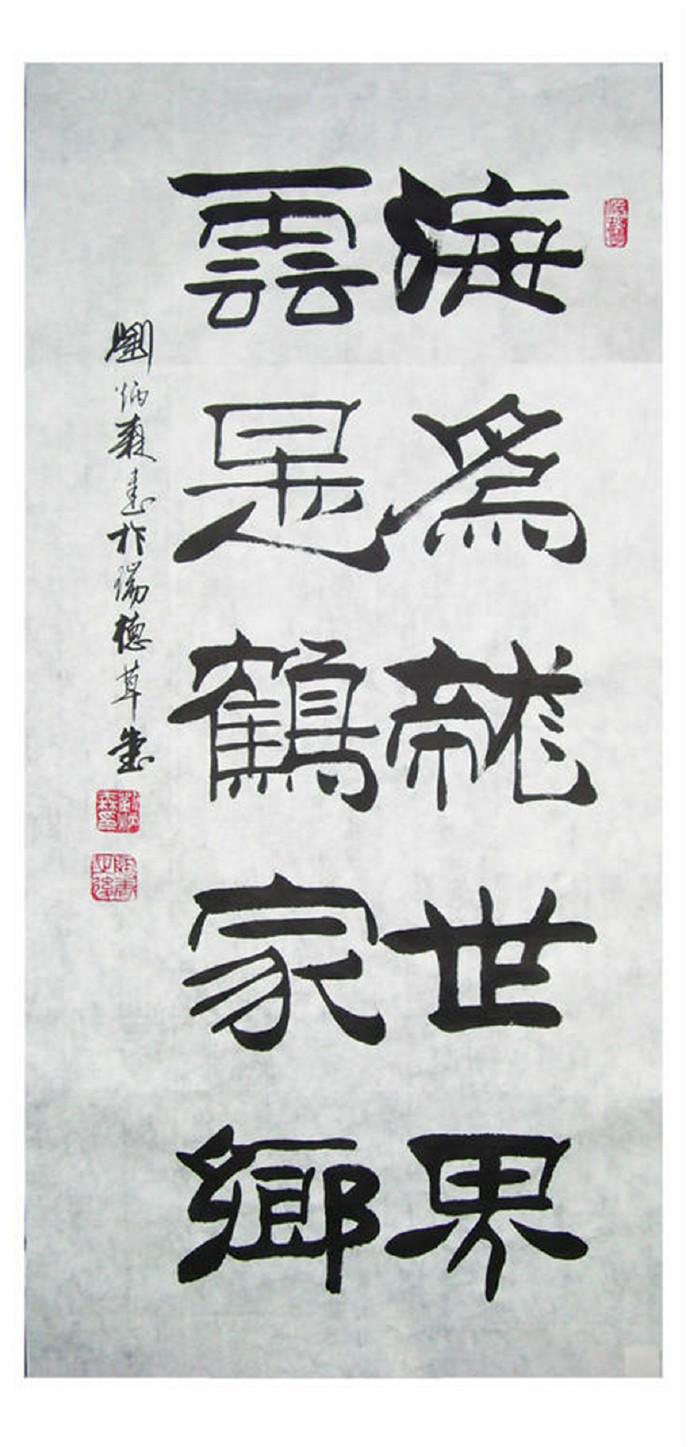 海為龍世界
雲是鶴家鄉
劉炳森書於瑞德草堂